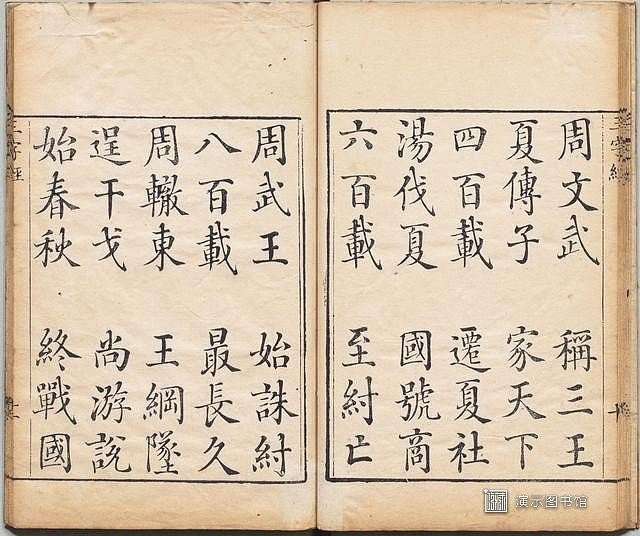 周文武 稱三王
夏傳子 家天下
四百載 遷夏社
湯伐夏 國號商
六百載 至紂亡
周武王 始誅紂
八百載 最長久
周轍東 王綱墜
逞干戈 尚游說
始春秋 終戰國
三字經
三字經
演示图书馆